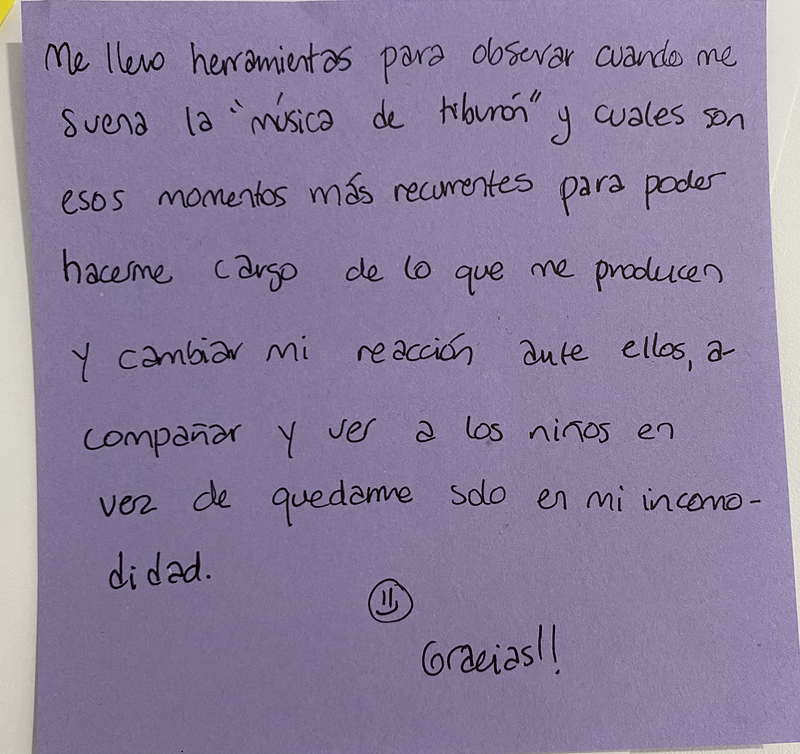 Me llevo herramientas para observar cuando me
suena la "música de tiburón" y cuales son
esos momentos más recurrentes para poder
hacerme cargo de lo que me producen
y cambiar mi reacción ante ellos, a-
compañar y ver a los niños en
vez de quedarme solo en mi incomo-
didad.
Gracias!!